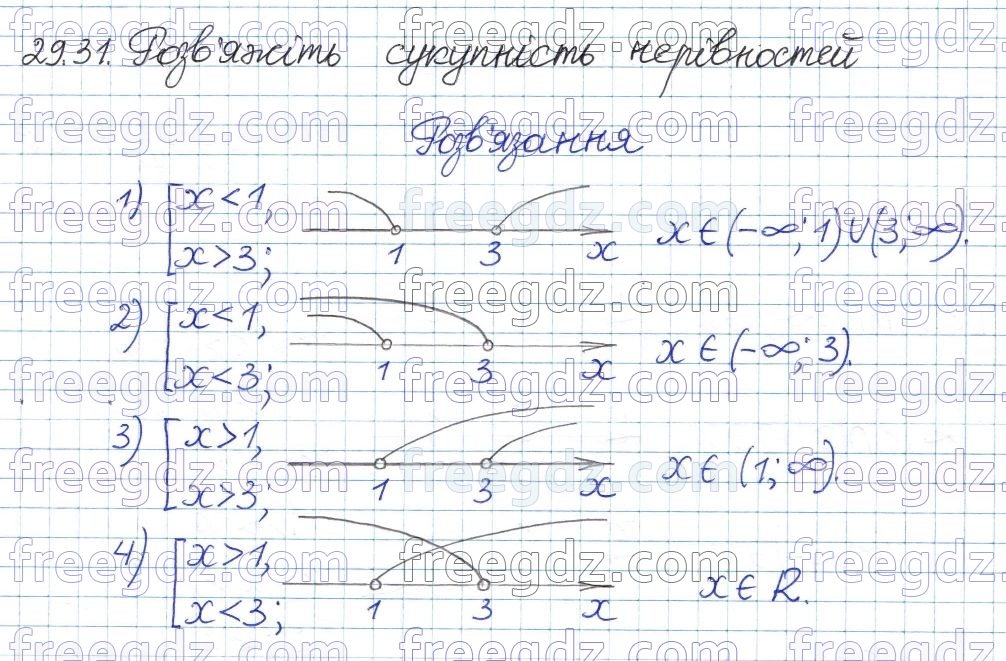 29.31. Розв'яжіть сукупність нерівностей
Розв'язання
1) [ x < 1,
x > 3;
1 3 x
x ∈ (-∞; 1) ∪ (3; ∞).
2) [ x < 1,
x < 3;
1 3 x
x ∈ (-∞; 3).
3) [ x > 1,
x > 3;
1 3 x
x ∈ (1; ∞).
4) [ x > 1,
x < 3;
1 3 x
x ∈ R.
freegdz.com